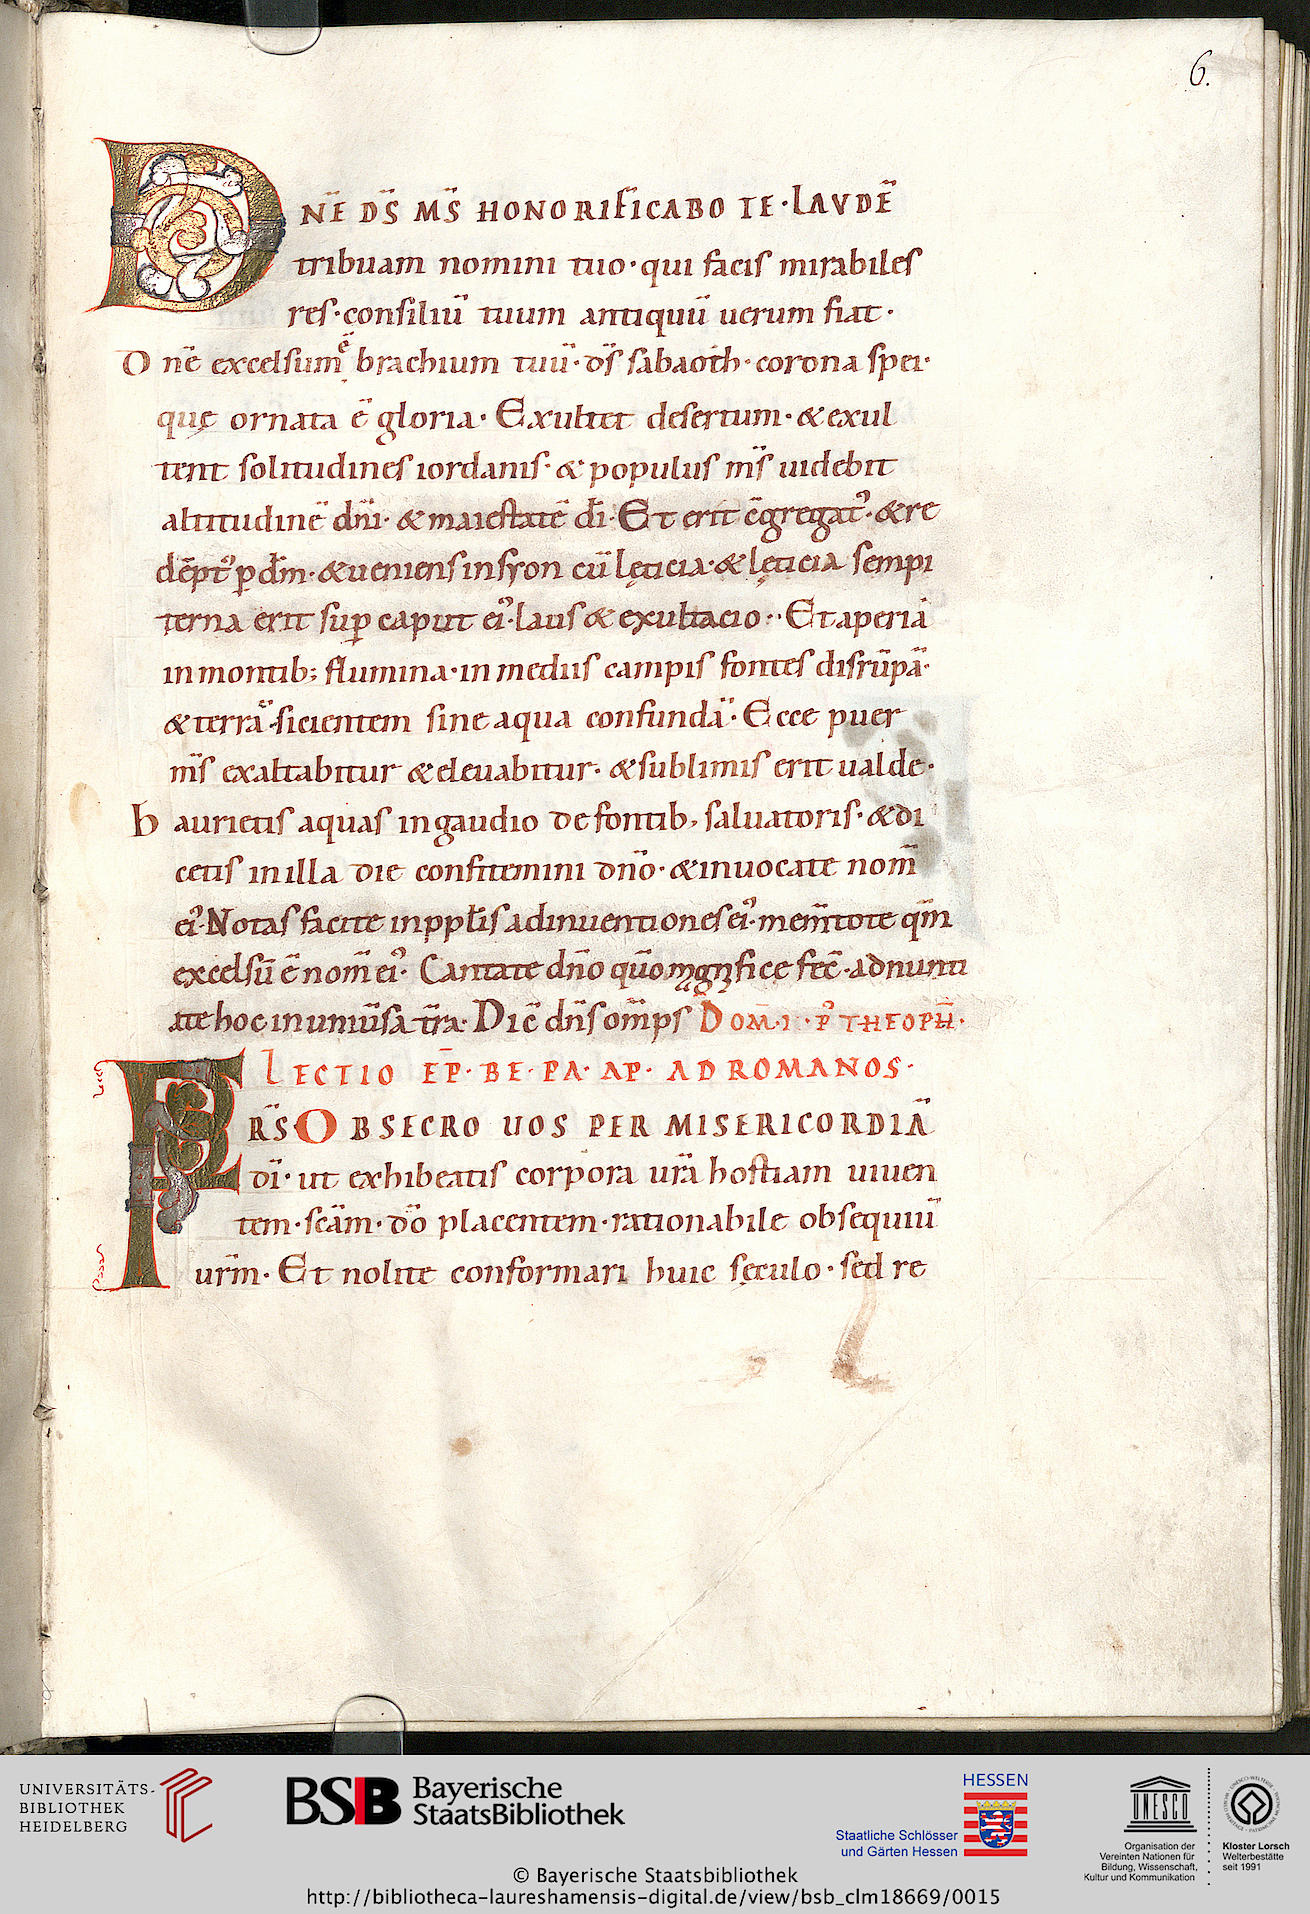 6.
DNĒ DS̄ MS̄ HONORIFICABO TE · LAVDĒ
tribuam nomini tuo · qui facis mirabiles
res · consiliū tuum antiquū uerum fiat ·
D nē excelsum ē brachium tuū · ds̄ sabaoth · corona spei ·
quę ornata ē gloria · Exultet desertum · & exul
tent solitudines iordanis · & populus ms̄ uidebit
altitudinē dn̄i · & maiestatē dī · Et erit c̄gregat᾿ · & re
dēpt᾿ p dm̄ · & ueniens in syon cū lęticia · & lęticia sempi
terna erit sup caput ei᾿ · laus & exultacio · Et aperiā
in montib; flumina · in mediis campis fontes disrūpā ·
& terrā sicientem sine aqua confundā · Ecce puer
ms̄ exaltabitur & eleuabitur · & sublimis erit ualde ·
h aurietis aquas in gaudio de fontib; saluatoris · & di
cetis in illa die confitemini dn̄o · & inuocate nom̄
ei᾿ · Notas facite in ppl̄is adinuentiones ei᾿ · mem̄tote qm̄
excelsū ē nom̄ ei᾿ · Cantate dn̄o qūo magnifice fec̄ · adnunti
ate hoc in uniūsa tr̄a · Dic̄ dn̄s om̄ps DOM̄ · I · P᾿ THEOPH̄ ·
LECTIO EP̄ · BE · PA · AP · AD ROMANOS ·
FRS̄ OBSECRO UOS PER MISERICORDIĀ
dī · ut exhibeatis corpora ur̄a hostiam uiuen
tem · sc̄am · dō placentem · rationabile obsequiū
urm̄ · Et nolite conformari huic sęculo · sed re
UNIVERSITÄTS-
BIBLIOTHEK
HEIDELBERG
BSB Bayerische
StaatsBibliothek
HESSEN
Staatliche Schlösser
und Gärten Hessen
UNESCO
Organisation der
Vereinten Nationen für
Bildung, Wissenschaft,
Kultur und Kommunikation
Kloster Lorsch
Welterbestätte
seit 1991
© Bayerische Staatsbibliothek
http://bibliotheca-laureshamensis-digital.de/view/bsb_clm18669/0015